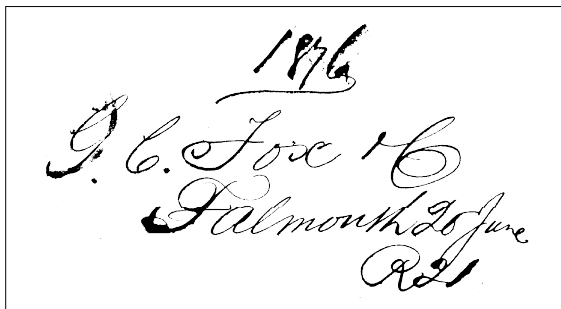 1876
G. C. Fox & C
Falmouth 20 June
R 21